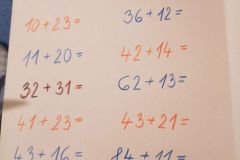 10+23= 36+12=
11+20= 42+14=
32+31= 62+13=
41+23= 43+21=
43+16= 84+11=